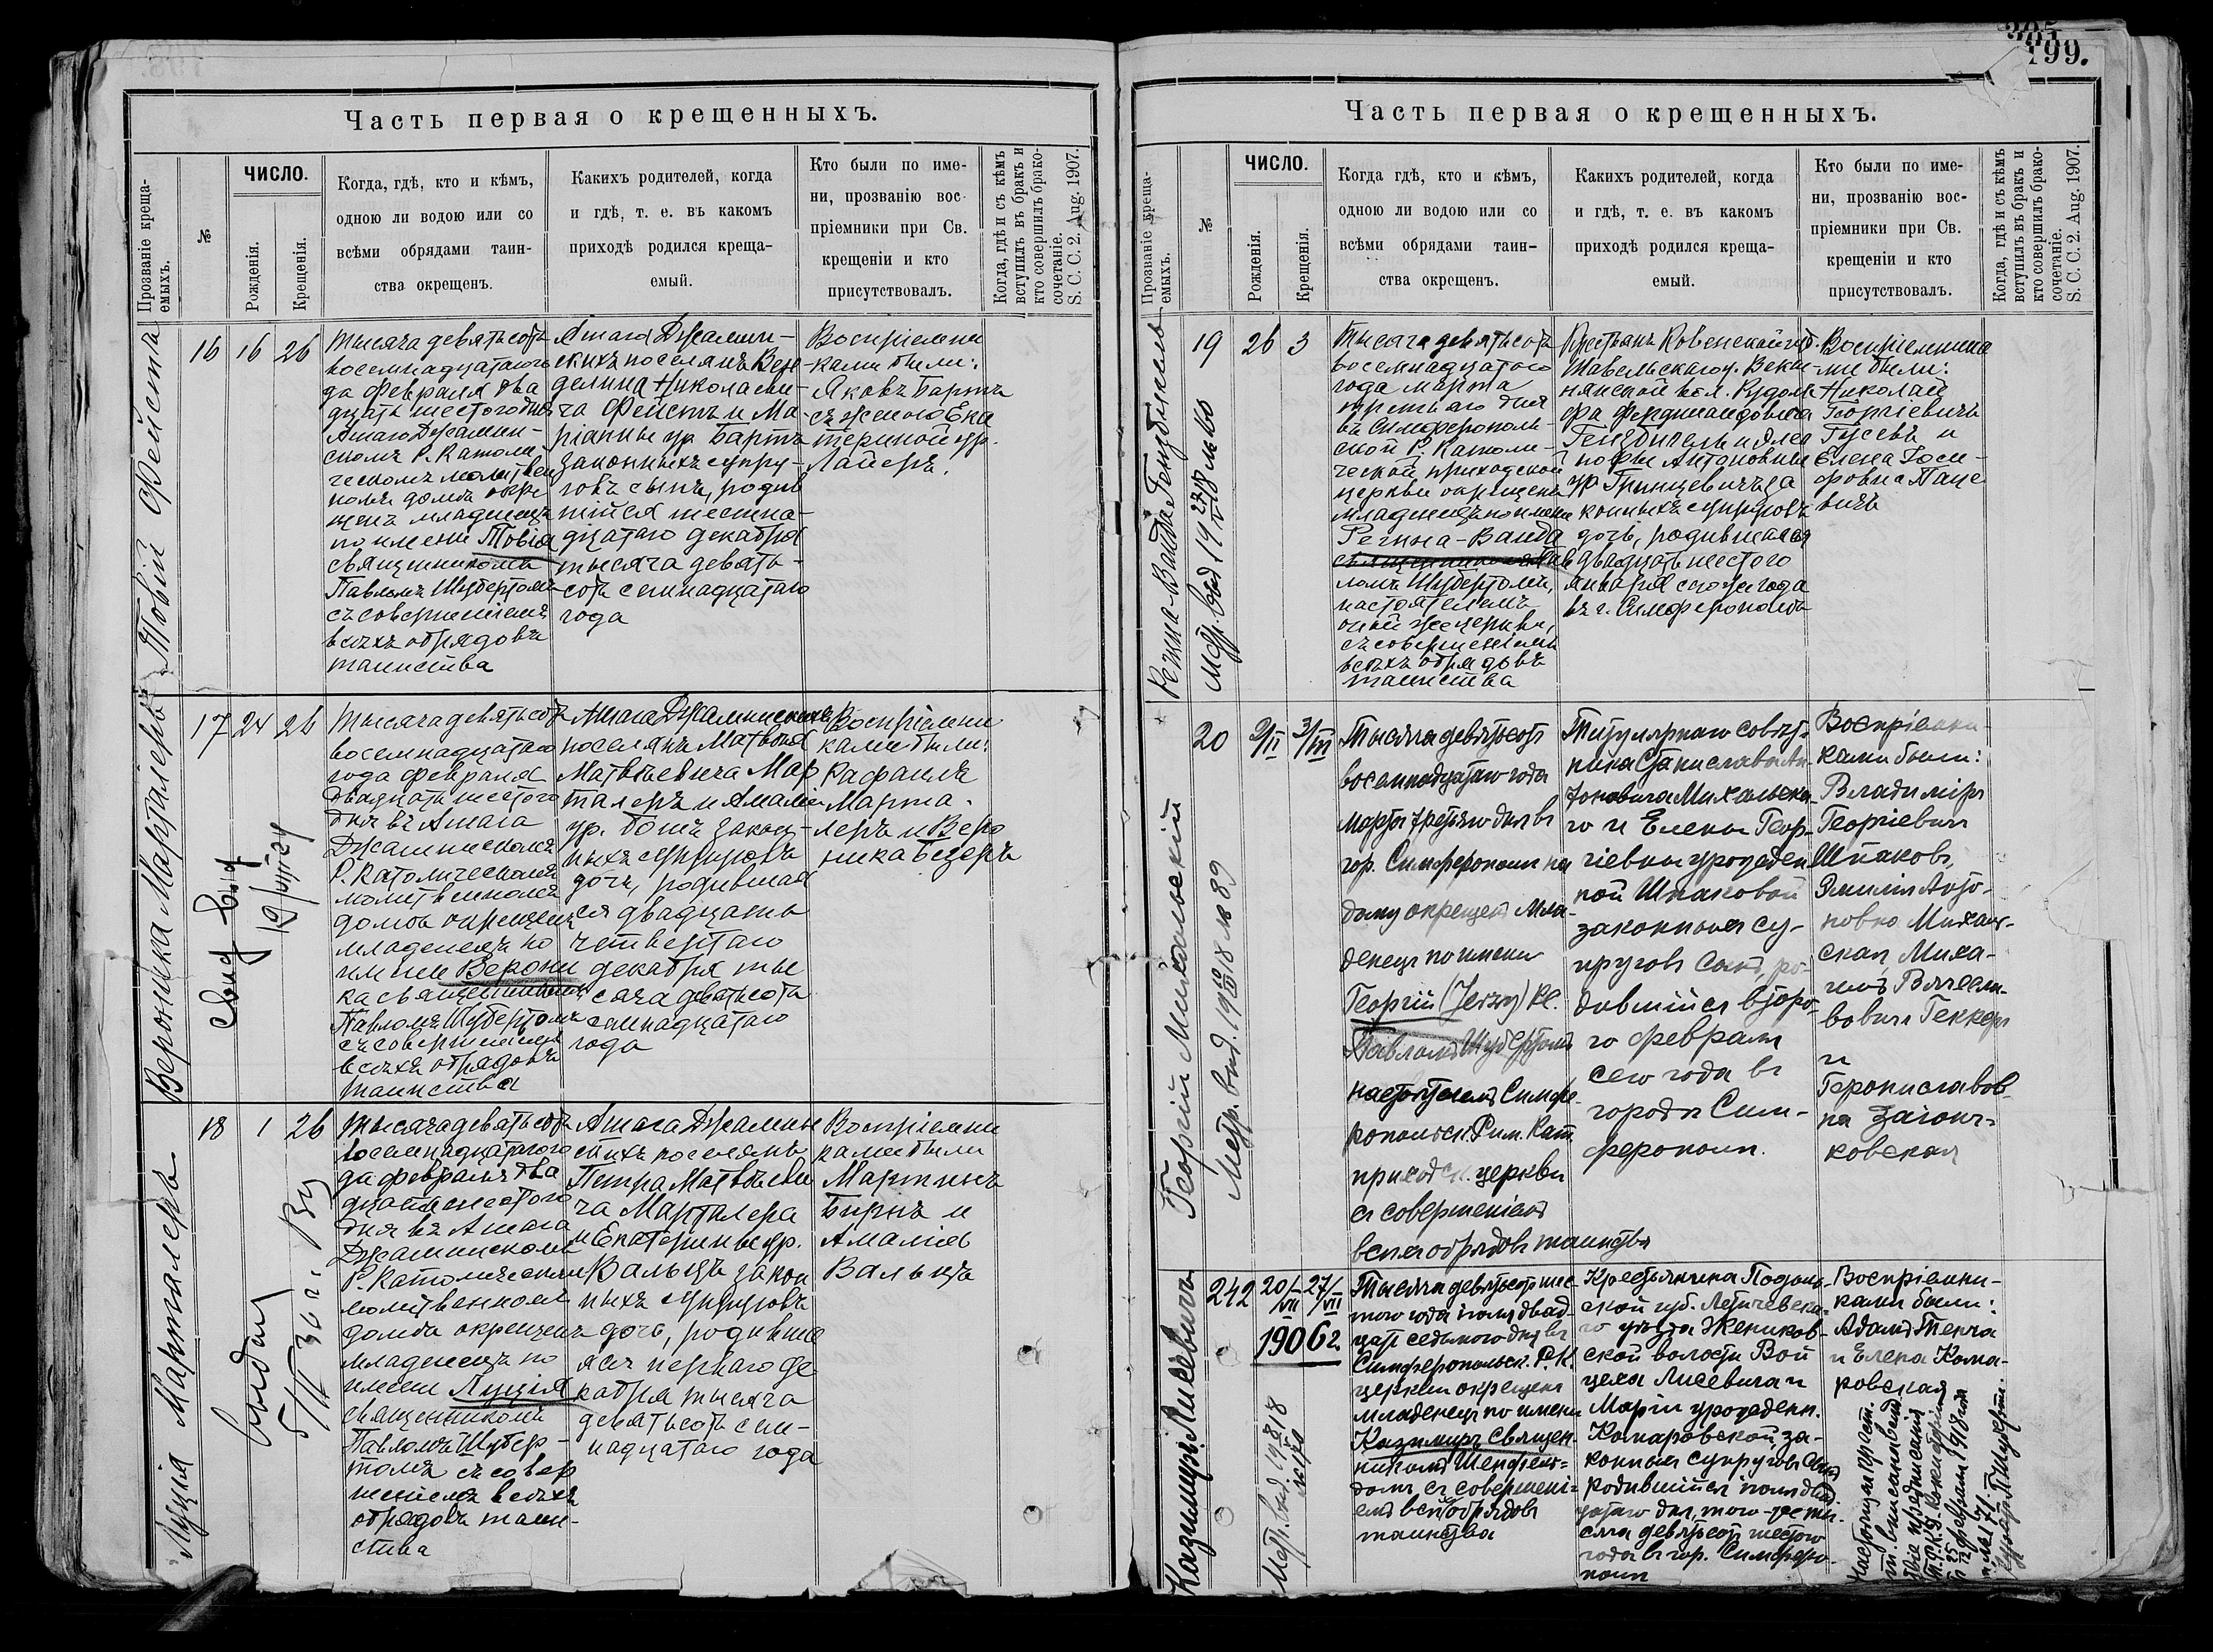 199.
Часть первая о крещенныхъ.
Прозваніе креща-
емыхъ.
№
ЧИСЛО.
Рожденія.
Крещенія.
Когда, гдѣ, кто и кѣмъ,
одною ли водою или со
всѣми обрядами таин-
ства окрещенъ.
Какихъ родителей, когда
и гдѣ, т. е. въ какомъ
приходѣ родился креща-
емый.
Кто были по име-
ни, прозванію вос-
пріемники при Св.
крещеніи и кто
присутствовалъ.
Когда, гдѣ и съ кѣмъ
вступилъ въ бракъ и
кто совершилъ брако-
сочетаніе.
S. C. C. 2. Aug. 1907.
Товій Фейстъ
16
16
26
Тысяча девятьсотъ
восемнадцатаго го
да февраля два
дцать шестого дня
Атаго Джамин-
скомъ Р. Католи
ческомъ молитвен
номъ домѣ окре
щенъ младенецъ
по имени Товія
священникомъ
Павломъ Шубертомъ
съ совершеніемъ
всѣхъ обрядовъ
таинства
Атаго Джамин-
скихъ поселянъ Вен
делина Николаеви-
ча Фейстъ и Ма-
ріанны ур. Бартъ
законныхъ супру-
говъ сынъ, родив
шійся шестна-
дцатаго декабря
тысяча девять-
сотъ семнадцатаго
года
Воспріемни
ками были:
Яковъ Бартъ
съ женою Ека
териной ур.
Лайеръ.
Вероника Марталеръ
17
24
26
свид выд
19/VII 24
Тысяча девятьсотъ
восемнадцатаго
года февраля
двадцать шестого
дня въ Атага
Джаминскомъ
Р. Католическомъ
молитвенномъ
домѣ окрещенъ
младенецъ по
имени Верони
ка священникомъ
Павломъ Шубертомъ
съ совершеніемъ
всѣхъ обрядовъ
таинства
Атага Джаминскихъ
поселянъ Матвѣя
Матвѣевича Мар
талеръ и Амаліи
ур. Бошъ закон-
ныхъ супруговъ
дочь, родившая
ся двадцать
четвертаго
декабря тыс
сяча девятьсотъ
семнадцатаго
года
Воспріемни
ками были:
Рафаилъ
Марта-
леръ и Веро
ника Бецеръ
Луція Марталеръ
18
1
26
выдан
5/VI 30 г. Ву
Тысяча девятьсотъ
восемнадцатаго го
да февраля два
дцать шестого
дня въ Атага
Джаминскомъ
Р. Католическомъ
молитвенномъ
домѣ окрещенъ
младенецъ по
имени Луція
священникомъ
Павломъ Шубер-
томъ съ совер
шеніемъ всѣхъ
обрядовъ таин-
ства
Атага Джамин
скихъ поселянъ
Петра Матвѣеви
ча Марталера
и Екатерины ур.
Вальцъ закон
ныхъ супруговъ
дочь, родивша
яся перваго де
кабря тысяча
девятьсотъ сем-
надцатаго года
Воспріемни
ками были
Мартинъ
Бирнъ и
Амалія
Вальцъ
Часть первая о крещенныхъ.
Прозваніе креща-
емыхъ.
№
ЧИСЛО.
Рожденія.
Крещенія.
Когда гдѣ, кто и кѣмъ,
одною ли водою или со
всѣми обрядами таин-
ства окрещенъ.
Какихъ родителей, когда
и гдѣ, т. е. въ какомъ
приходѣ родился креща-
емый.
Кто были по име-
ни, прозванію вос-
пріемники при Св.
крещеніи и кто
присутствовалъ.
Когда, гдѣ и съ кѣмъ
вступилъ въ бракъ и
кто совершилъ брако-
сочетаніе.
S. C. C. 2. Aug. 1907.
Регина-Ванда Генцбигель
19
26
3
Тысяча девятьсотъ
восемнадцатаго
года марта
третьяго дня
въ Симферополь-
ской Р. Католи-
ческой приходской
церкви окрещенъ
младенецъ по имени
Регина-Ванда
священникомъ Пав
ломъ Шубертомъ,
настоятелемъ
оной же церкви,
съ совершеніемъ
всѣхъ обрядовъ
таинства
Крестьянъ Ковенской губ.
Шавельскаго у. Векш-
нянской вол. Рудоль
фа Фердинандовича
Генцбигель и
Антоновны
ур Гринцевичъ за
конныхъ супруговъ
дочь, родившаяся
двадцать шестого
января сего же года
въ г. Симферополѣ
Воспріемника
ми были:
Николай
Георгіевичъ
Гусевъ и
Елена Іоси-
фовна Паце
вичъ
Георгій Михальскій
20
2/II
3/III
Тысяча девятьсотъ
восемнадцатаго года
марта третьяго дня въ
гор. Симферополѣ на
дому окрещенъ мла-
денецъ по имени
Георгій (Jerzy) Кс.
Павломъ Шубертомъ
настоятелемъ Симфе-
ропольск. Рим. Кат.
приходск. церкви
съ совершеніемъ
всѣхъ обрядовъ таинства
Титулярнаго совѣт-
ника Станислава Ан-
тоновича Михальска-
го и Елены Геор-
гіевны урожден
ной Шпаковой
законныхъ су-
пруговъ сынъ, ро-
дившійся второ-
го февраля
сего года въ
городѣ Сим-
ферополѣ.
Воспріемни-
ками были:
Владиміръ
Георгіевичъ
Шпаковъ,
Эмилія Анто-
новна Михаль-
ская, Миха-
илъ Вячесла-
вовичъ Геккеръ
и
Герониславов-
на Заіонч-
ковская
Казимиръ Лисевичъ
242
20/VII
27/VII
1906 г.
Тысяча девятьсотъ шес-
того года іюля двад-
цать седьмого дня въ
Симферопольск. Р.К.
церкви окрещенъ
младенецъ по имени
Казимиръ Священ-
никомъ Шенфель-
домъ съ совершені-
емъ всѣхъ обрядовъ
таинства
Крестьянина Подоль-
ской губ. Летичевска-
го уѣзда Женишков-
ской волости Вой
цеха Лисевича и
Маріи урожденн.
Комаровской, за-
конныхъ супруговъ сынъ
родившійся іюля двад
цатаго дня, того-же ты-
сяча девятьсотъ шестого
года въ гор. Симферо-
полѣ
Воспріемни-
ками были:
Адамъ Тенча
и Елена Кома-
ровская